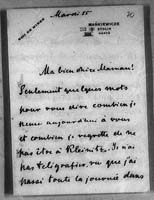 Mardi 15
70
MAŃKIEWICZE
STOLIN
Ma bien chère Maman!
Seulement quelques mots
pour vous dire combien je
pense aujourd'hui à vous
et combien je regrette de ne
pas être à Kleinitz. Je n'ai
pas télégrafié, vu que j'ai
passé toute la journée dans